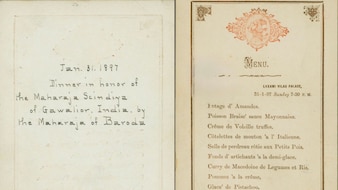 Jan. 31. 1897
Dinner in honor of
the Maharaja Scindiya
of Gawalior, India, by
the Maharaja of Baroda
MENU.
LUXMI VILAS PALACE,
31-1-97 Sunday 7-30 P. M.
Potage d' Amandes.
Poisson Braise' sauce Mayonnaise.
Crême de Volaille truffée.
Côtelettes de mouton 'a l' Italienne.
Selle de perdreau rôtie aux Petits Pois.
Fonds d' artichauts 'a la demi-glace.
Curry de Macedoine de Legumes et Ris.
Pommes 'a la crême.
Glace' de Pistachios.